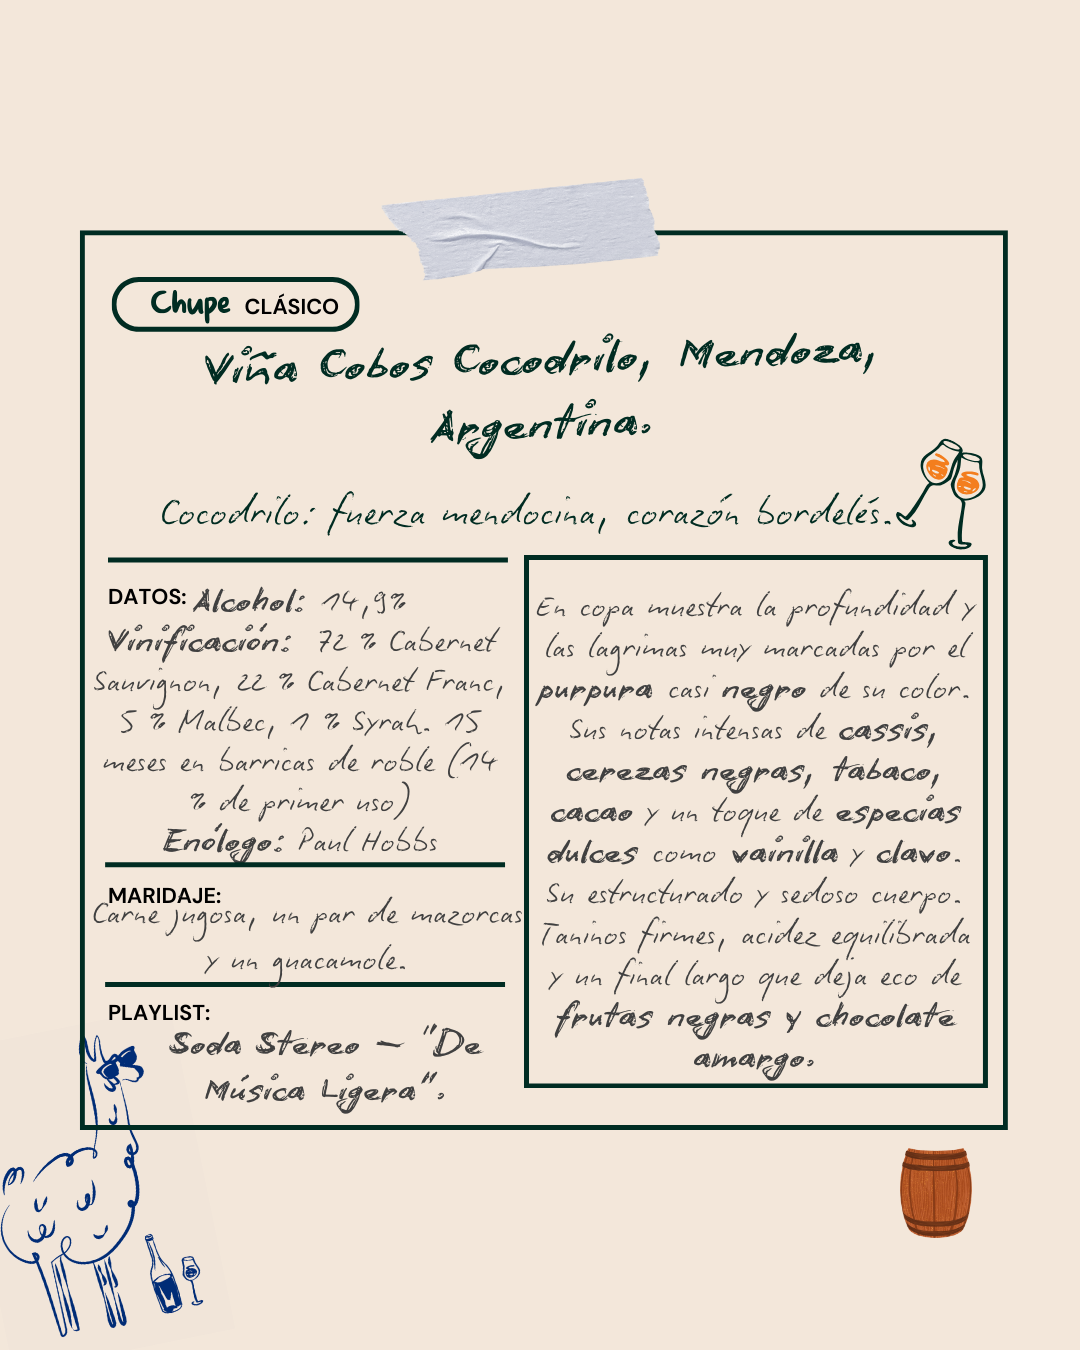 Chupe CLÁSICO
Viña Cobos Cocodrilo, Mendoza,
Argentina.
Cocodrilo: fuerza mendocina, corazón bordelés.
DATOS: Alcohol: 14,9%
Vinificación: 72 % Cabernet
Sauvignon, 22 % Cabernet Franc,
5 % Malbec, 1 % Syrah. 15
meses en barricas de roble (14
% de primer uso)
Enólogo: Paul Hobbs
MARIDAJE:
Carne jugosa, un par de mazorcas
y un guacamole.
PLAYLIST:
Soda Stereo – "De
Música Ligera".
En copa muestra la profundidad y
las lagrimas muy marcadas por el
purpura casi negro de su color.
Sus notas intensas de cassis,
cerezas negras, tabaco,
cacao y un toque de especias
dulces como vainilla y clavo.
Su estructurado y sedoso cuerpo.
Taninos firmes, acidez equilibrada
y un final largo que deja eco de
frutas negras y chocolate
amargo.